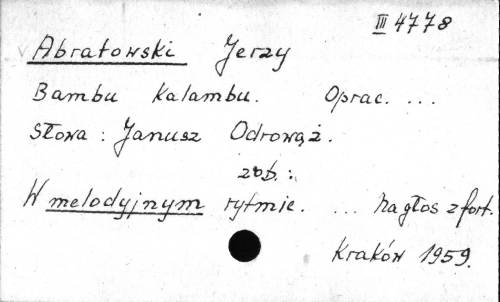 III 4778
Abratowski Jerzy
Bambu Kalambu. Oprac. ...
Słowa: Janusz Odrowąż.
zob.:
W melodyjnym rytmie. ... Na głos z fort.
Kraków 1959.